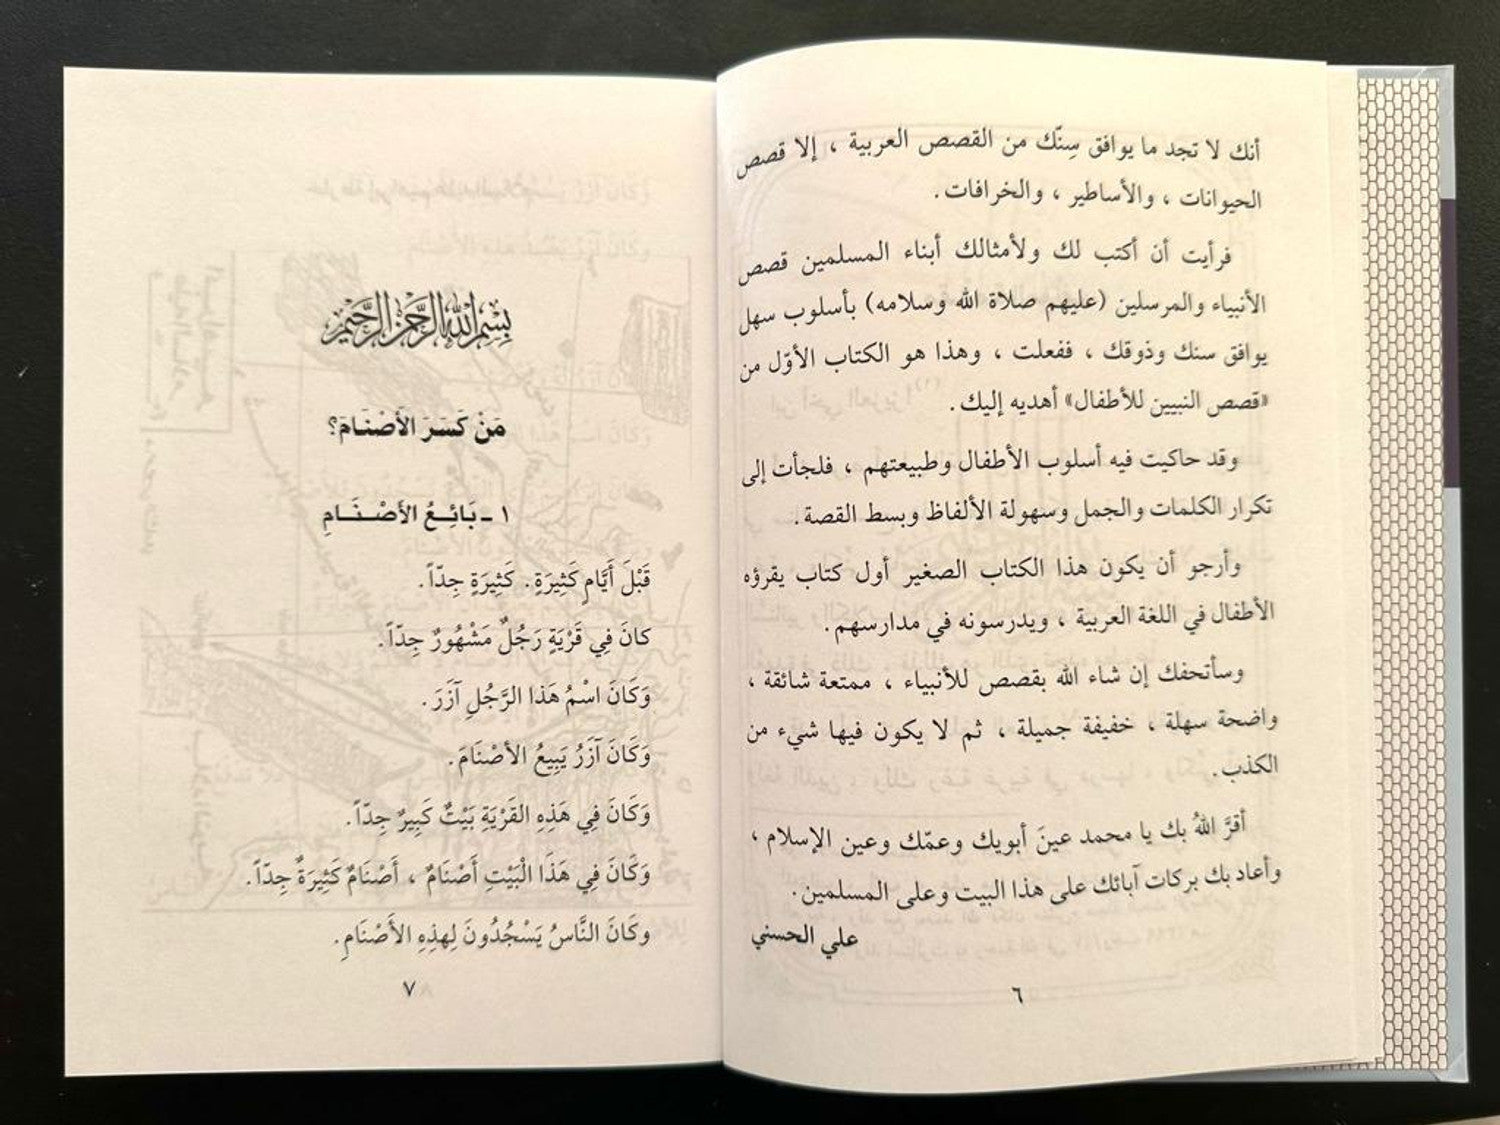 أنك لا تجد ما يوافق سِنّك من القصص العربية ، إلا قصص
الحيوانات ، والأساطير ، والخرافات .
فرأيت أن أكتب لك ولأمثالك أبناء المسلمين قصص
الأنبياء والمرسلين (عليهم صلاة الله وسلامه) بأسلوب سهل
يوافق سنك وذوقك ، ففعلت ، وهذا هو الكتاب الأوّل من
«قصص النبيين للأطفال» أهديه إليك .
وقد حاكيت فيه أسلوب الأطفال وطبيعتهم ، فلجأت إلى
تكرار الكلمات والجمل وسهولة الألفاظ وبسط القصة .
وأرجو أن يكون هذا الكتاب الصغير أول كتاب يقرؤه
الأطفال في اللغة العربية ، ويدرسونه في مدارسهم .
وسأتحفك إن شاء الله بقصص للأنبياء ، ممتعة شائقة ،
واضحة سهلة ، خفيفة جميلة ، ثم لا يكون فيها شيء من
الكذب .
أقرَّ اللهُ بك يا محمد عينَ أبويك وعمّك وعين الإسلام ،
وأعاد بك بركات آبائك على هذا البيت وعلى المسلمين .
علي الحسني
٦
بِسْمِ اللَّهِ الرَّحْمَنِ الرَّحِيمِ
مَنْ كَسَرَ الأَصْنَامَ؟
١ - بَائِعُ الأَصْنَامِ
قَبْلَ أَيَّامٍ كَثِيرَةٍ . كَثِيرَةٍ جِدّاً .
كانَ فِي قَرْيَةٍ رَجُلٌ مَشْهُورٌ جِدّاً .
وَكَانَ اسْمُ هَذَا الرَّجُلِ آزَرَ .
وَكَانَ آزَرُ يَبِيعُ الأصْنَامَ .
وَكَانَ فِي هَذِهِ القَرْيَةِ بَيْتٌ كَبِيرٌ جِدّاً .
وَكَانَ فِي هَذَا الْبَيْتِ أَصْنَامٌ ، أَصْنَامٌ كَثِيرَةٌ جِدّاً .
وكَانَ النَّاسُ يَسْجُدُونَ لِهذِهِ الأَصْنَامِ .
٧